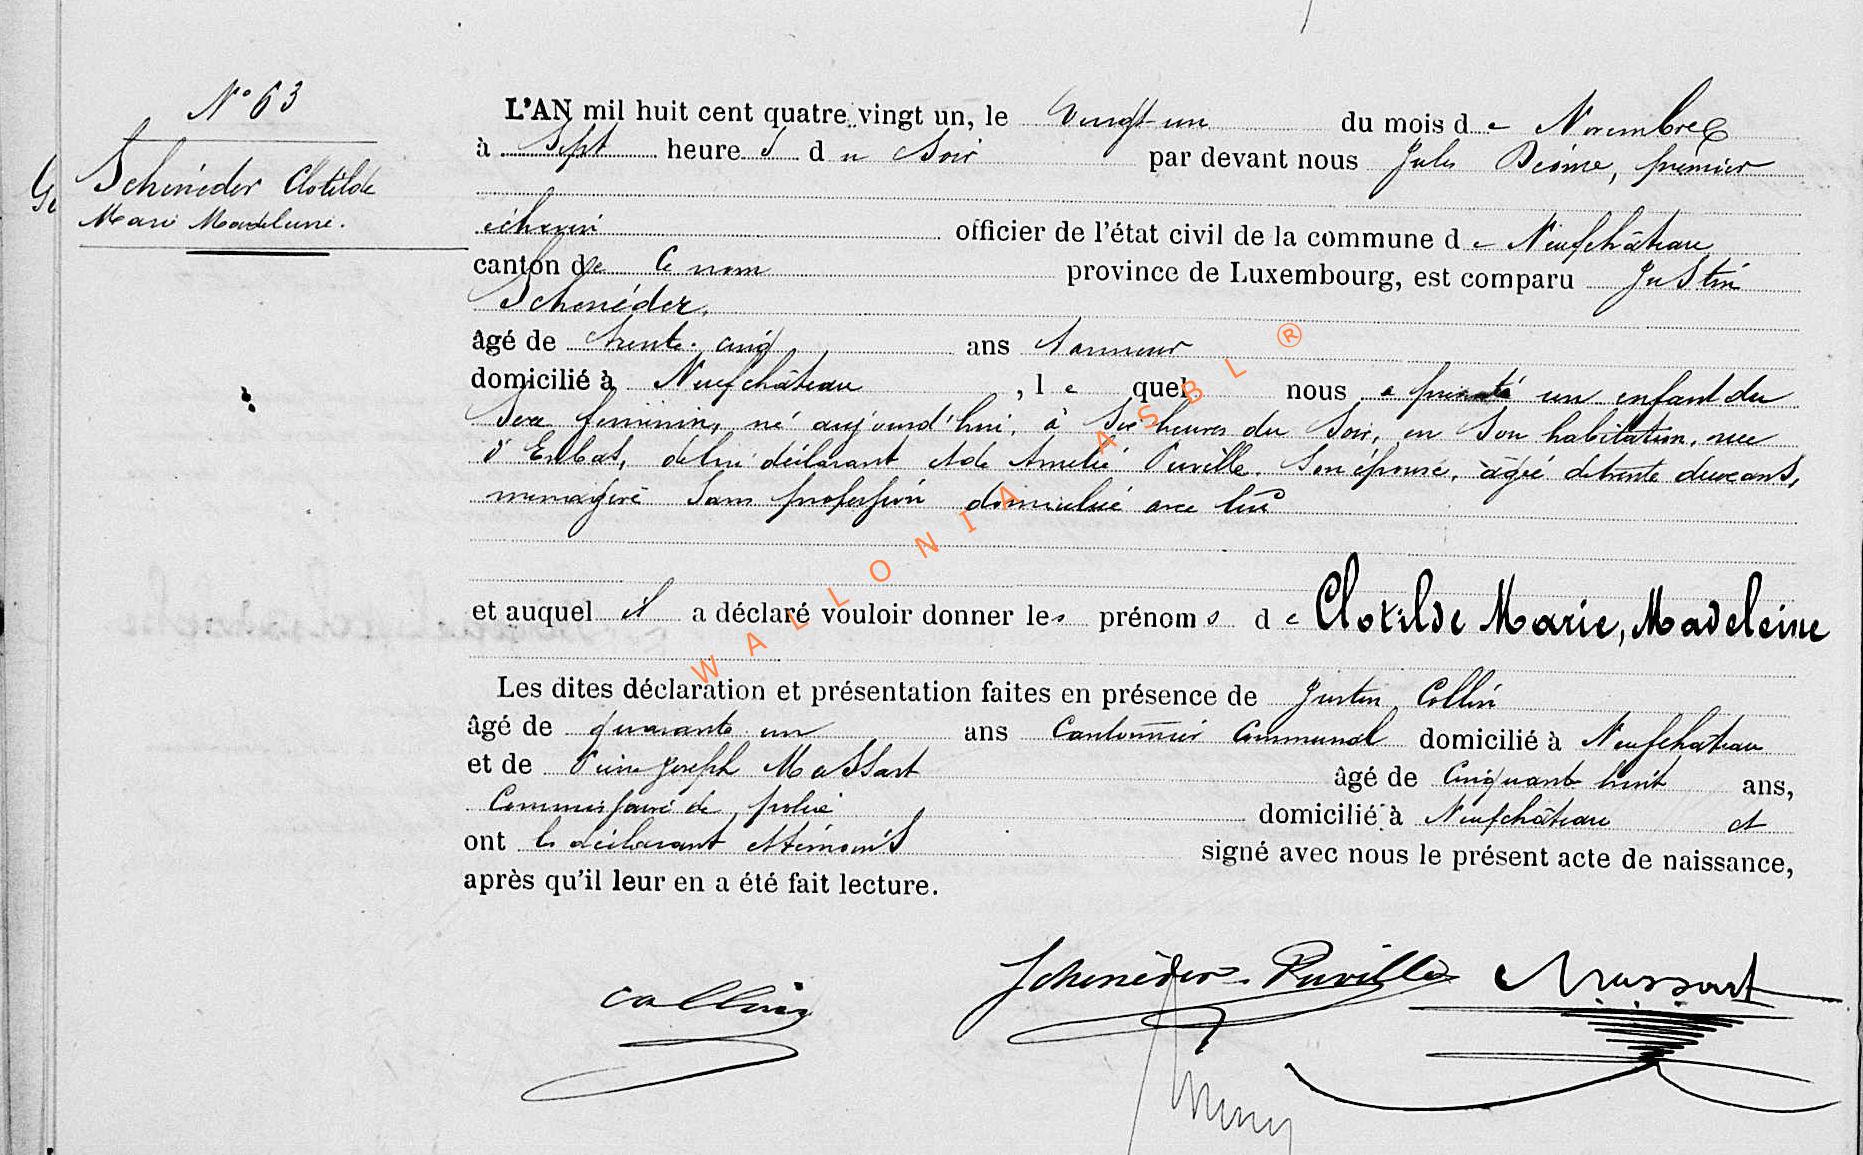 N° 63
Scheneder Clotilde
Marie Madeleine.
L'AN mil huit cent quatre vingt un, le vingt-un du mois de Novembre
à Sept heures du Soir par devant nous Jules premier
échevin officier de l'état civil de la commune de Neufchâteau
canton de Ce nom province de Luxembourg, est comparu Justin
Schenéder.
âgé de trente-cinq ans tanneur
domicilié à Neufchâteau, le quel nous a présenté un enfant du
Sexe féminin, né aujourd'hui, à Six heures du Soir, en Son habitation, rue
d'Enbas, de lui déclarant et de Amelie Puville. Son épouse, âgée de trente deux ans,
menagère Sans profession domiciliée avec lui
et auquel il a déclaré vouloir donner les prénoms de Clotilde Marie, Madeleine
Les dites déclaration et présentation faites en présence de Justin Collin
âgé de quarante un ans Cantonnier Communal domicilié à Neufchâteau
et de Pierre Joseph Massart âgé de Cinquante huit ans,
Commissaire de police domicilié à Neufchâteau et
ont le déclarant et témoins signé avec nous le présent acte de naissance,
après qu'il leur en a été fait lecture.
Collin
Schenéder-Puville
Massart
WALLONIA ASBL ®